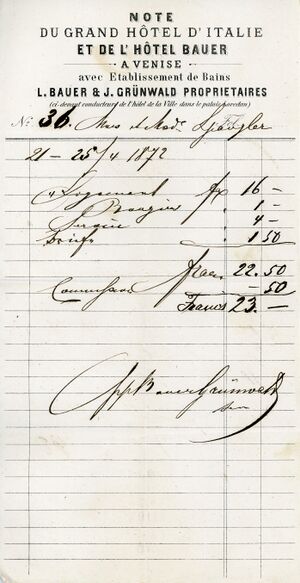 NOTE
DU GRAND HÔTEL D'ITALIE
ET DE L'HÔTEL BAUER
A VENISE
avec Etablissement de Bains
L. BAUER & J. GRÜNWALD PROPRIETAIRES
(ci-devant conducteurs de l'hôtel de la Ville dans le palais Loredan)
No. 36. et Mad. Spengler
21 - 25/4 1872
Logement fr 16 -
Bougies 1 -
Service 4 -
1 50
francs 22.50
- 50
Francs 23.-
Bauer Grünwald